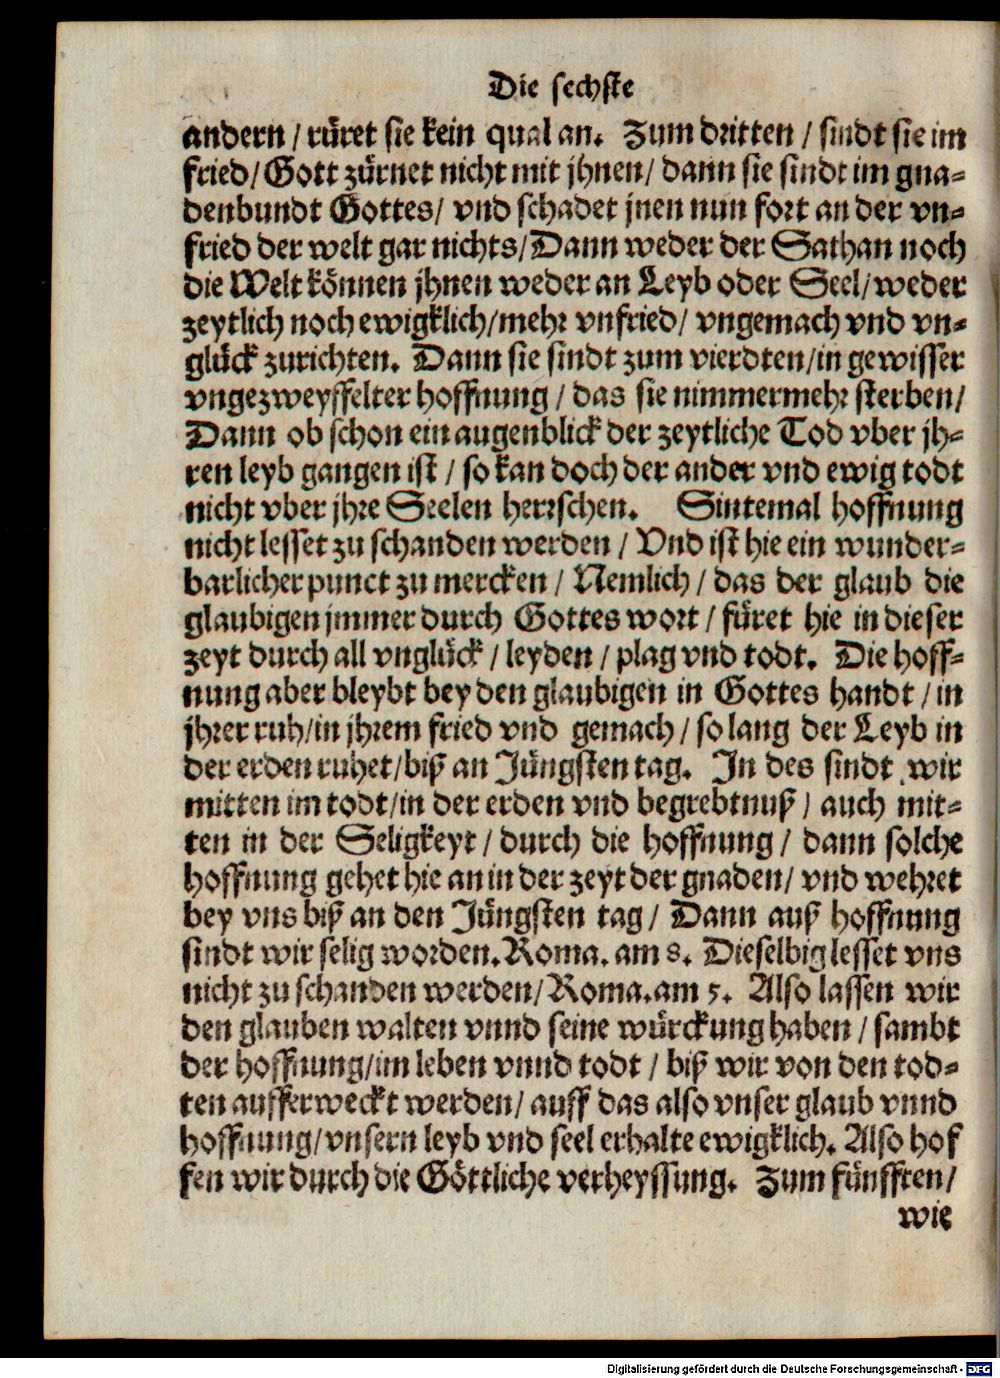 Die sechste
andern / rüret sie kein qual an. Zum dritten / sindt sie im
fried / Gott zürnet nicht mit jhnen / dann sie sindt im gna-
denbundt Gottes / vnd schadet jnen nun fort an der vn-
fried der welt gar nichts / Dann weder der Sathan noch
die Welt können jhnen weder an Leyb oder Seel / weder
zeytlich noch ewigklich / mehr vnfried / vngemach vnd vn-
glück zurichten. Dann sie sindt zum vierdten / in gewisser
vngezweyffelter hoffnung / das sie nimmermehr sterben /
Dann ob schon ein augenblick der zeytliche Tod vber jh-
ren leyb gangen ist / so kan doch der ander vnd ewig todt
nicht vber jhre Seelen herrschen. Sintemal hoffnung
nicht lesset zu schanden werden / Vnd ist hie ein wunder-
barlicher punct zu mercken / Nemlich / das der glaub die
glaubigen jmmer durch Gottes wort / füret hie in dieser
zeyt durch all vnglück / leyden / plag vnd todt. Die hoff-
nung aber bleybt bey den glaubigen in Gottes handt / in
jhrer ruh / in jhrem fried vnd gemach / so lang der Leyb in
der erden ruhet / biß an Jüngsten tag. In des sindt wir
mitten im todt / in der erden vnd begrebtnuß / auch mit-
ten in der Seligkeyt / durch die hoffnung / dann solche
hoffnung gehet hie an in der zeyt der gnaden / vnd wehret
bey vns biß an den Jüngsten tag / Dann auß hoffnung
sindt wir selig worden. Roma. am 8. Dieselbig lesset vns
nicht zu schanden werden / Roma. am 5. Also lassen wir
den glauben walten vnnd seine würckung haben / sambt
der hoffnung / im leben vnnd todt / biß wir von den tod-
ten aufferweckt werden / auff das also vnser glaub vnnd
hoffnung / vnsern leyb vnd seel erhalte ewigklich. Also hof
fen wir durch die Göttliche verheyssung. Zum fünfften /
wie
Digitalisierung gefördert durch die Deutsche Forschungsgemeinschaft - DFG